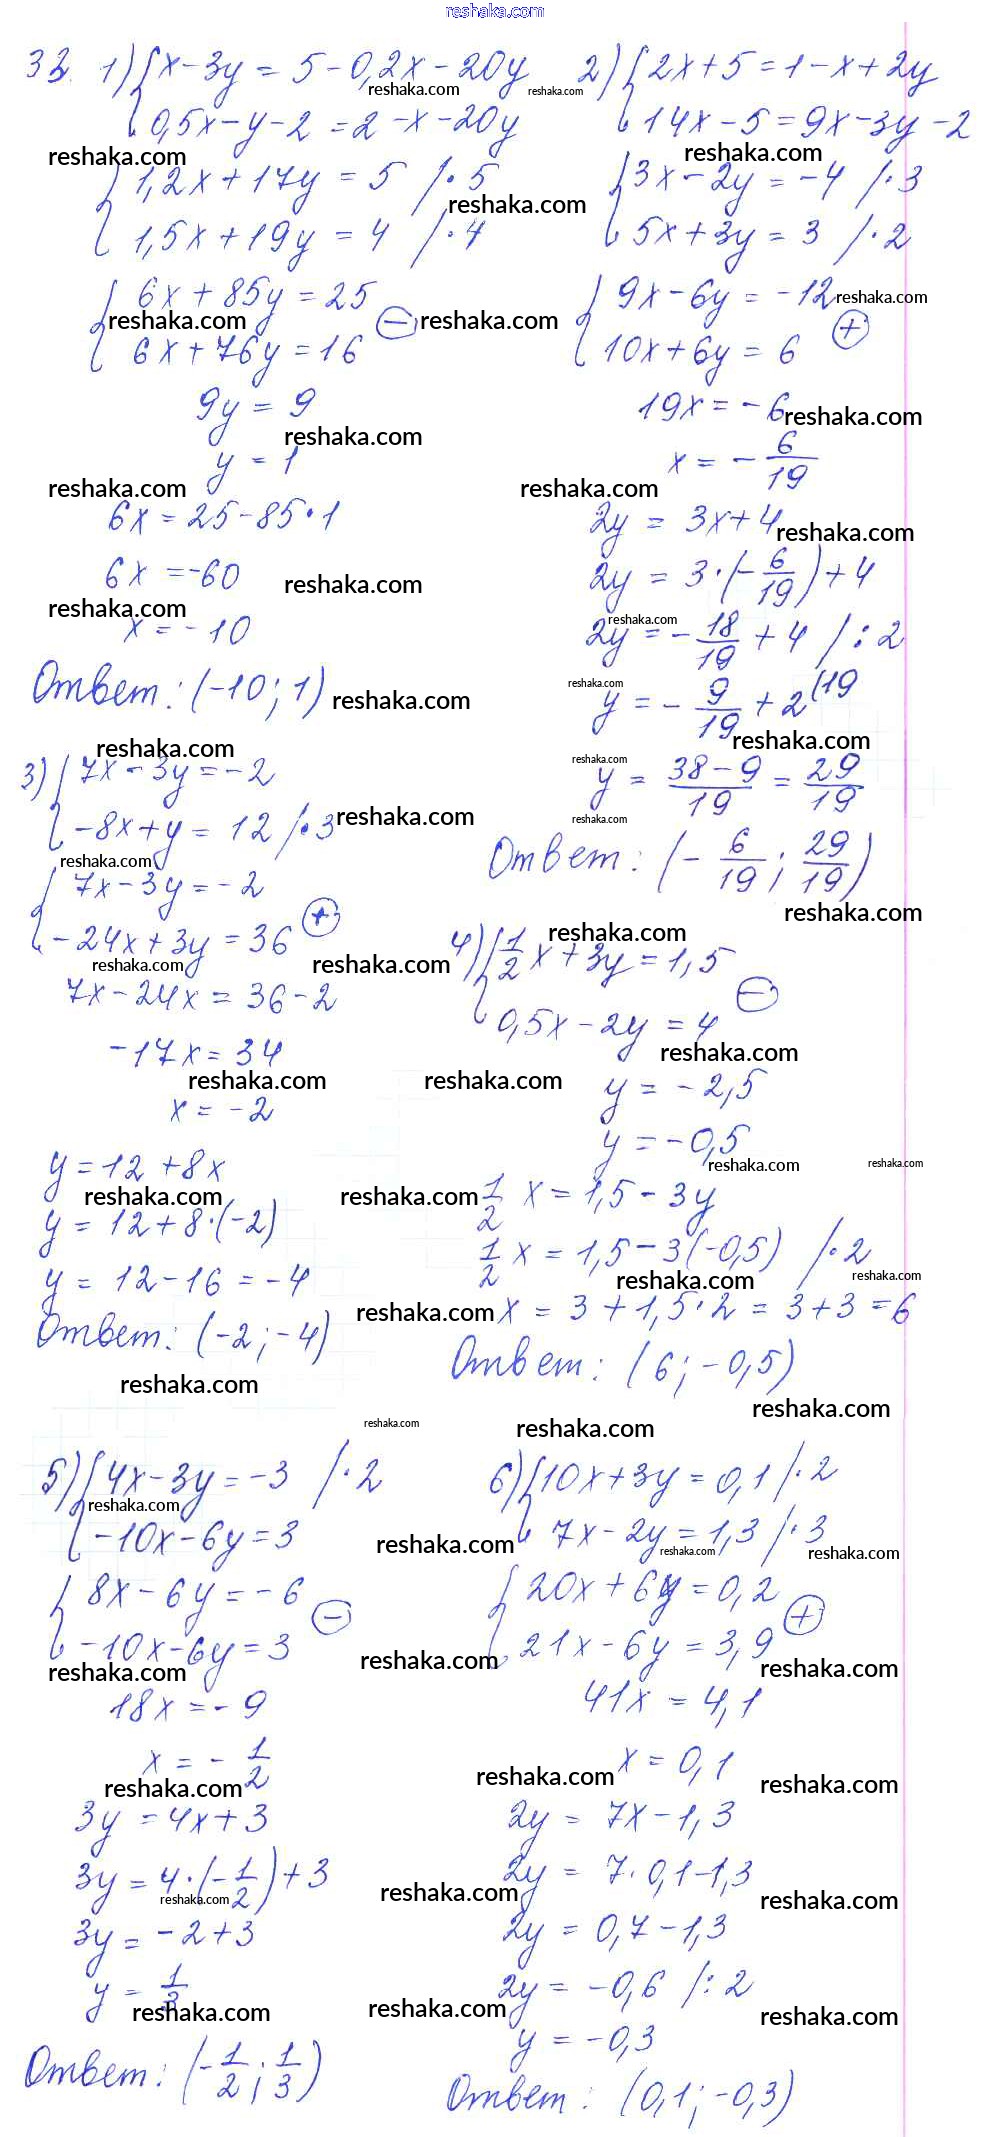 reshaka.com
33. 1) { x - 3y = 5 - 0,2x - 20y
0,5x - y - 2 = 2 - x - 20y
{ 1,2x + 17y = 5 /·5
1,5x + 19y = 4 /·4
{ 6x + 85y = 25
6x + 76y = 16 (−)
9y = 9
y = 1
6x = 25 - 85·1
6x = -60
x = -10
Ответ: (-10; 1)
2) { 2x + 5 = 1 - x + 2y
14x - 5 = 9x - 3y - 2
{ 3x - 2y = -4 /·3
5x + 3y = 3 /·2
{ 9x - 6y = -12
10x + 6y = 6 (+)
19x = -6
x = - 6/19
2y = 3x + 4
2y = 3·(- 6/19) + 4
2y = - 18/19 + 4 /:2
y = - 9/19 + 2 (19
y = (38 - 9)/19 = 29/19
Ответ: (- 6/19; 29/19)
3) { 7x - 3y = -2
-8x + y = 12 /·3
{ 7x - 3y = -2
-24x + 3y = 36 (+)
7x - 24x = 36 - 2
-17x = 34
x = -2
y = 12 + 8x
y = 12 + 8·(-2)
y = 12 - 16 = -4
Ответ: (-2; -4)
4) { 1/2 x + 3y = 1,5
0,5x - 2y = 4 (−)
y = -2,5
y = -0,5
1/2 x = 1,5 - 3y
1/2 x = 1,5 - 3(-0,5) /·2
x = 3 + 1,5·2 = 3 + 3 = 6
Ответ: (6; -0,5)
5) { 4x - 3y = -3 /·2
-10x - 6y = 3
{ 8x - 6y = -6
-10x - 6y = 3 (−)
18x = -9
x = - 1/2
3y = 4x + 3
3y = 4·(- 1/2) + 3
3y = -2 + 3
y = 1/3
Ответ: (- 1/2; 1/3)
6) { 10x + 3y = 0,1 /·2
7x - 2y = 1,3 /·3
{ 20x + 6y = 0,2
21x - 6y = 3,9 (+)
41x = 4,1
x = 0,1
2y = 7x - 1,3
2y = 7·0,1 - 1,3
2y = 0,7 - 1,3
2y = -0,6 /:2
y = -0,3
Ответ: (0,1; -0,3)